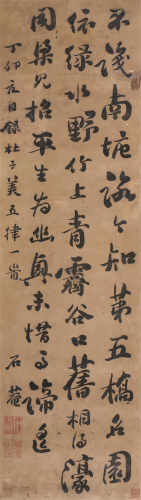 不識南塘路今知第五橋名園
依綠水野竹上青霄谷口舊相得濠
同梁見招平生為幽興未惜馬蹄遙
丁卯夏日錄杜子美五律一首
石菴